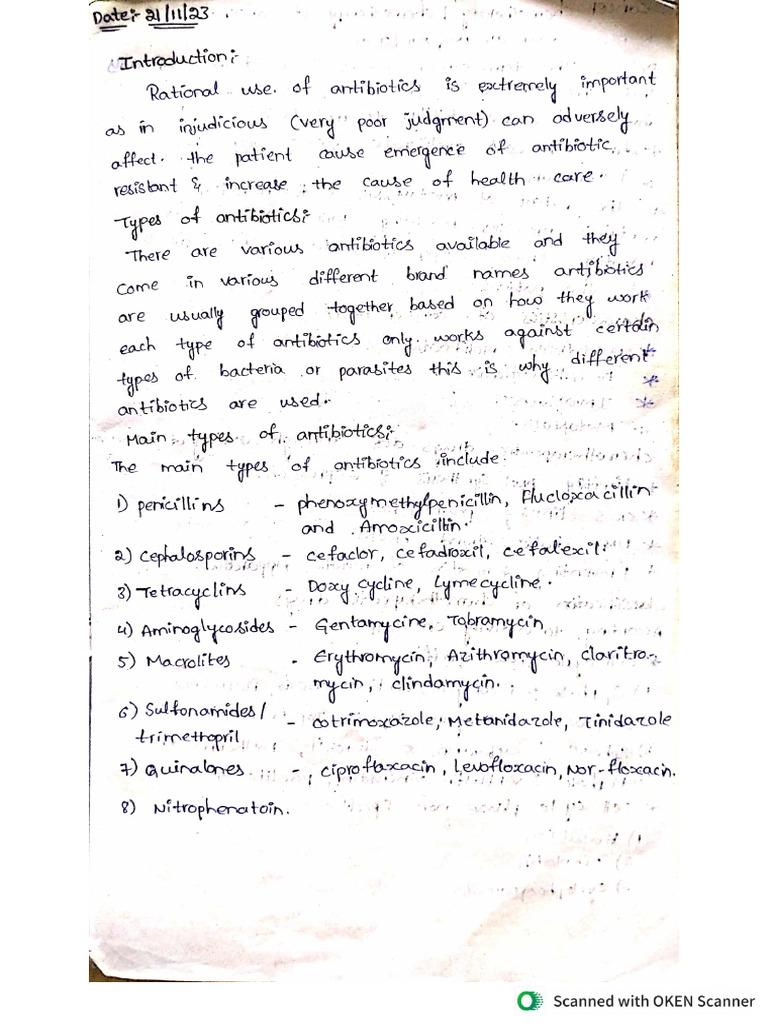 Date:- 21/11/23
Introduction:-
Rational use of antibiotics is extremely important
as in injudicious (very poor judgment) can adversely
affect. the patient cause emergence of antibiotic
resistant & increase the cause of health care.
Types of antibiotics:
There are various antibiotics available and they
come in various different brand names antibiotics
are usually grouped together based on how they work
each type of antibiotics only works against certain
types of bacteria or parasites this is why different
antibiotics are used.
Main types of antibiotics:
The main types of antibiotics include
1) penicillins - phenoxymethylpenicillin, Flucloxacillin
and Amoxicillin.
2) Cephalosporins - cefaclor, cefadroxil, cefalexil.
3) Tetracyclins - Doxy cycline, Lymecycline.
4) Aminoglycosides - Gentamycine, Tobramycin
5) Macrolites - Erythromycin, Azithromycin, claritro-
mycin, clindamycin.
6) Sulfonamides/
- cotrimoxazole, Metanidazole, Tinidazole
trimethopril
7) Quinalones - ciprofloxacin, Levofloxacin, Nor-floxacin.
8) Nitrophenatoin.
Scanned with OKEN Scanner